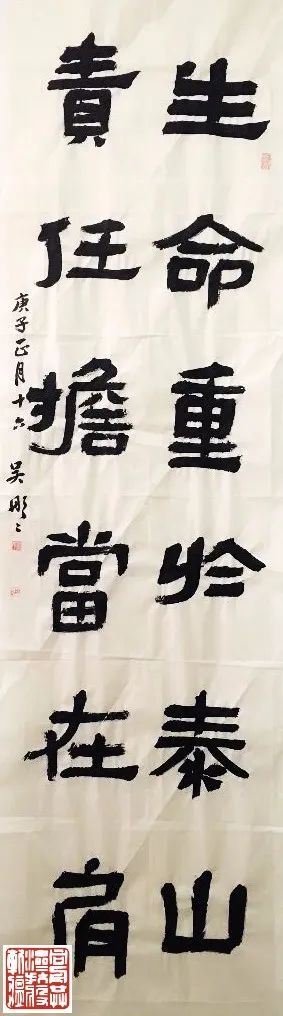 生命重於泰山
責任擔當在肩
庚子正月十六 吴彤彤